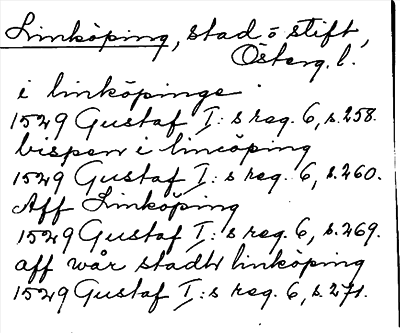 Linköping, stad o stift,
Österg. l.
i linköpinge
1529 Gustaf I:s reg. 6, s. 258.
bispen i lincöping
1529 Gustaf I:s reg. 6, s. 260.
Aff Linköping
1529 Gustaf I:s reg. 6, s. 269.
aff wår stadh linköping
1529 Gustaf I:s reg. 6, s. 271.